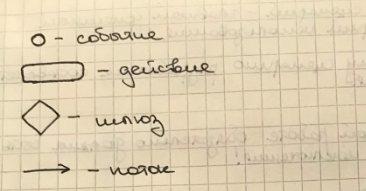 – событие
– действие
– шлюз
– поток